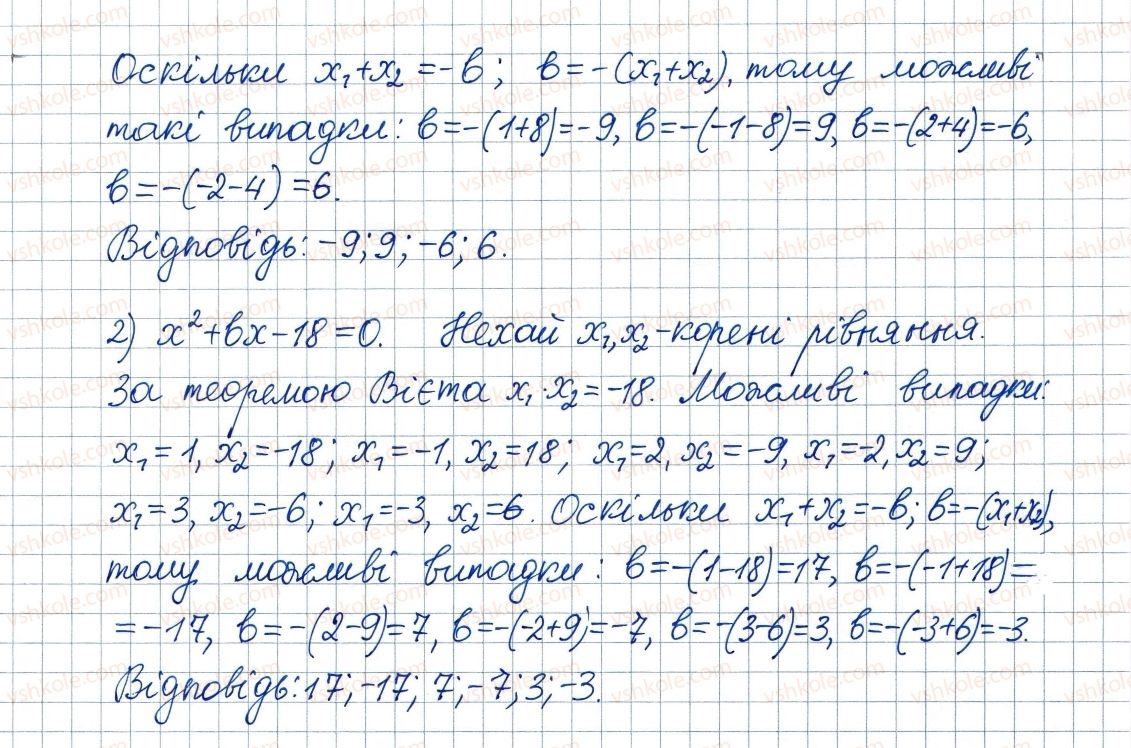 Оскільки x₁+x₂=-b; b=-(x₁+x₂), тому можливі
такі випадки: b=-(1+8)=-9, b=-(-1-8)=9, b=-(2+4)=-6,
b=-(-2-4)=6.
Відповідь: -9; 9; -6; 6.
2) x²+bx-18=0. Нехай x₁,x₂-корені рівняння.
За теоремою Вієта x₁·x₂=-18. Можливі випадки:
x₁=1, x₂=-18; x₁=-1, x₂=18; x₁=2, x₂=-9, x₁=-2, x₂=9;
x₁=3, x₂=-6; x₁=-3, x₂=6. Оскільки x₁+x₂=-b; b=-(x₁+x₂),
тому можливі випадки: b=-(1-18)=17, b=-(-1+18)=
=-17, b=-(2-9)=7, b=-(-2+9)=-7, b=-(3-6)=3, b=-(-3+6)=-3.
Відповідь: 17; -17; 7; -7; 3; -3.